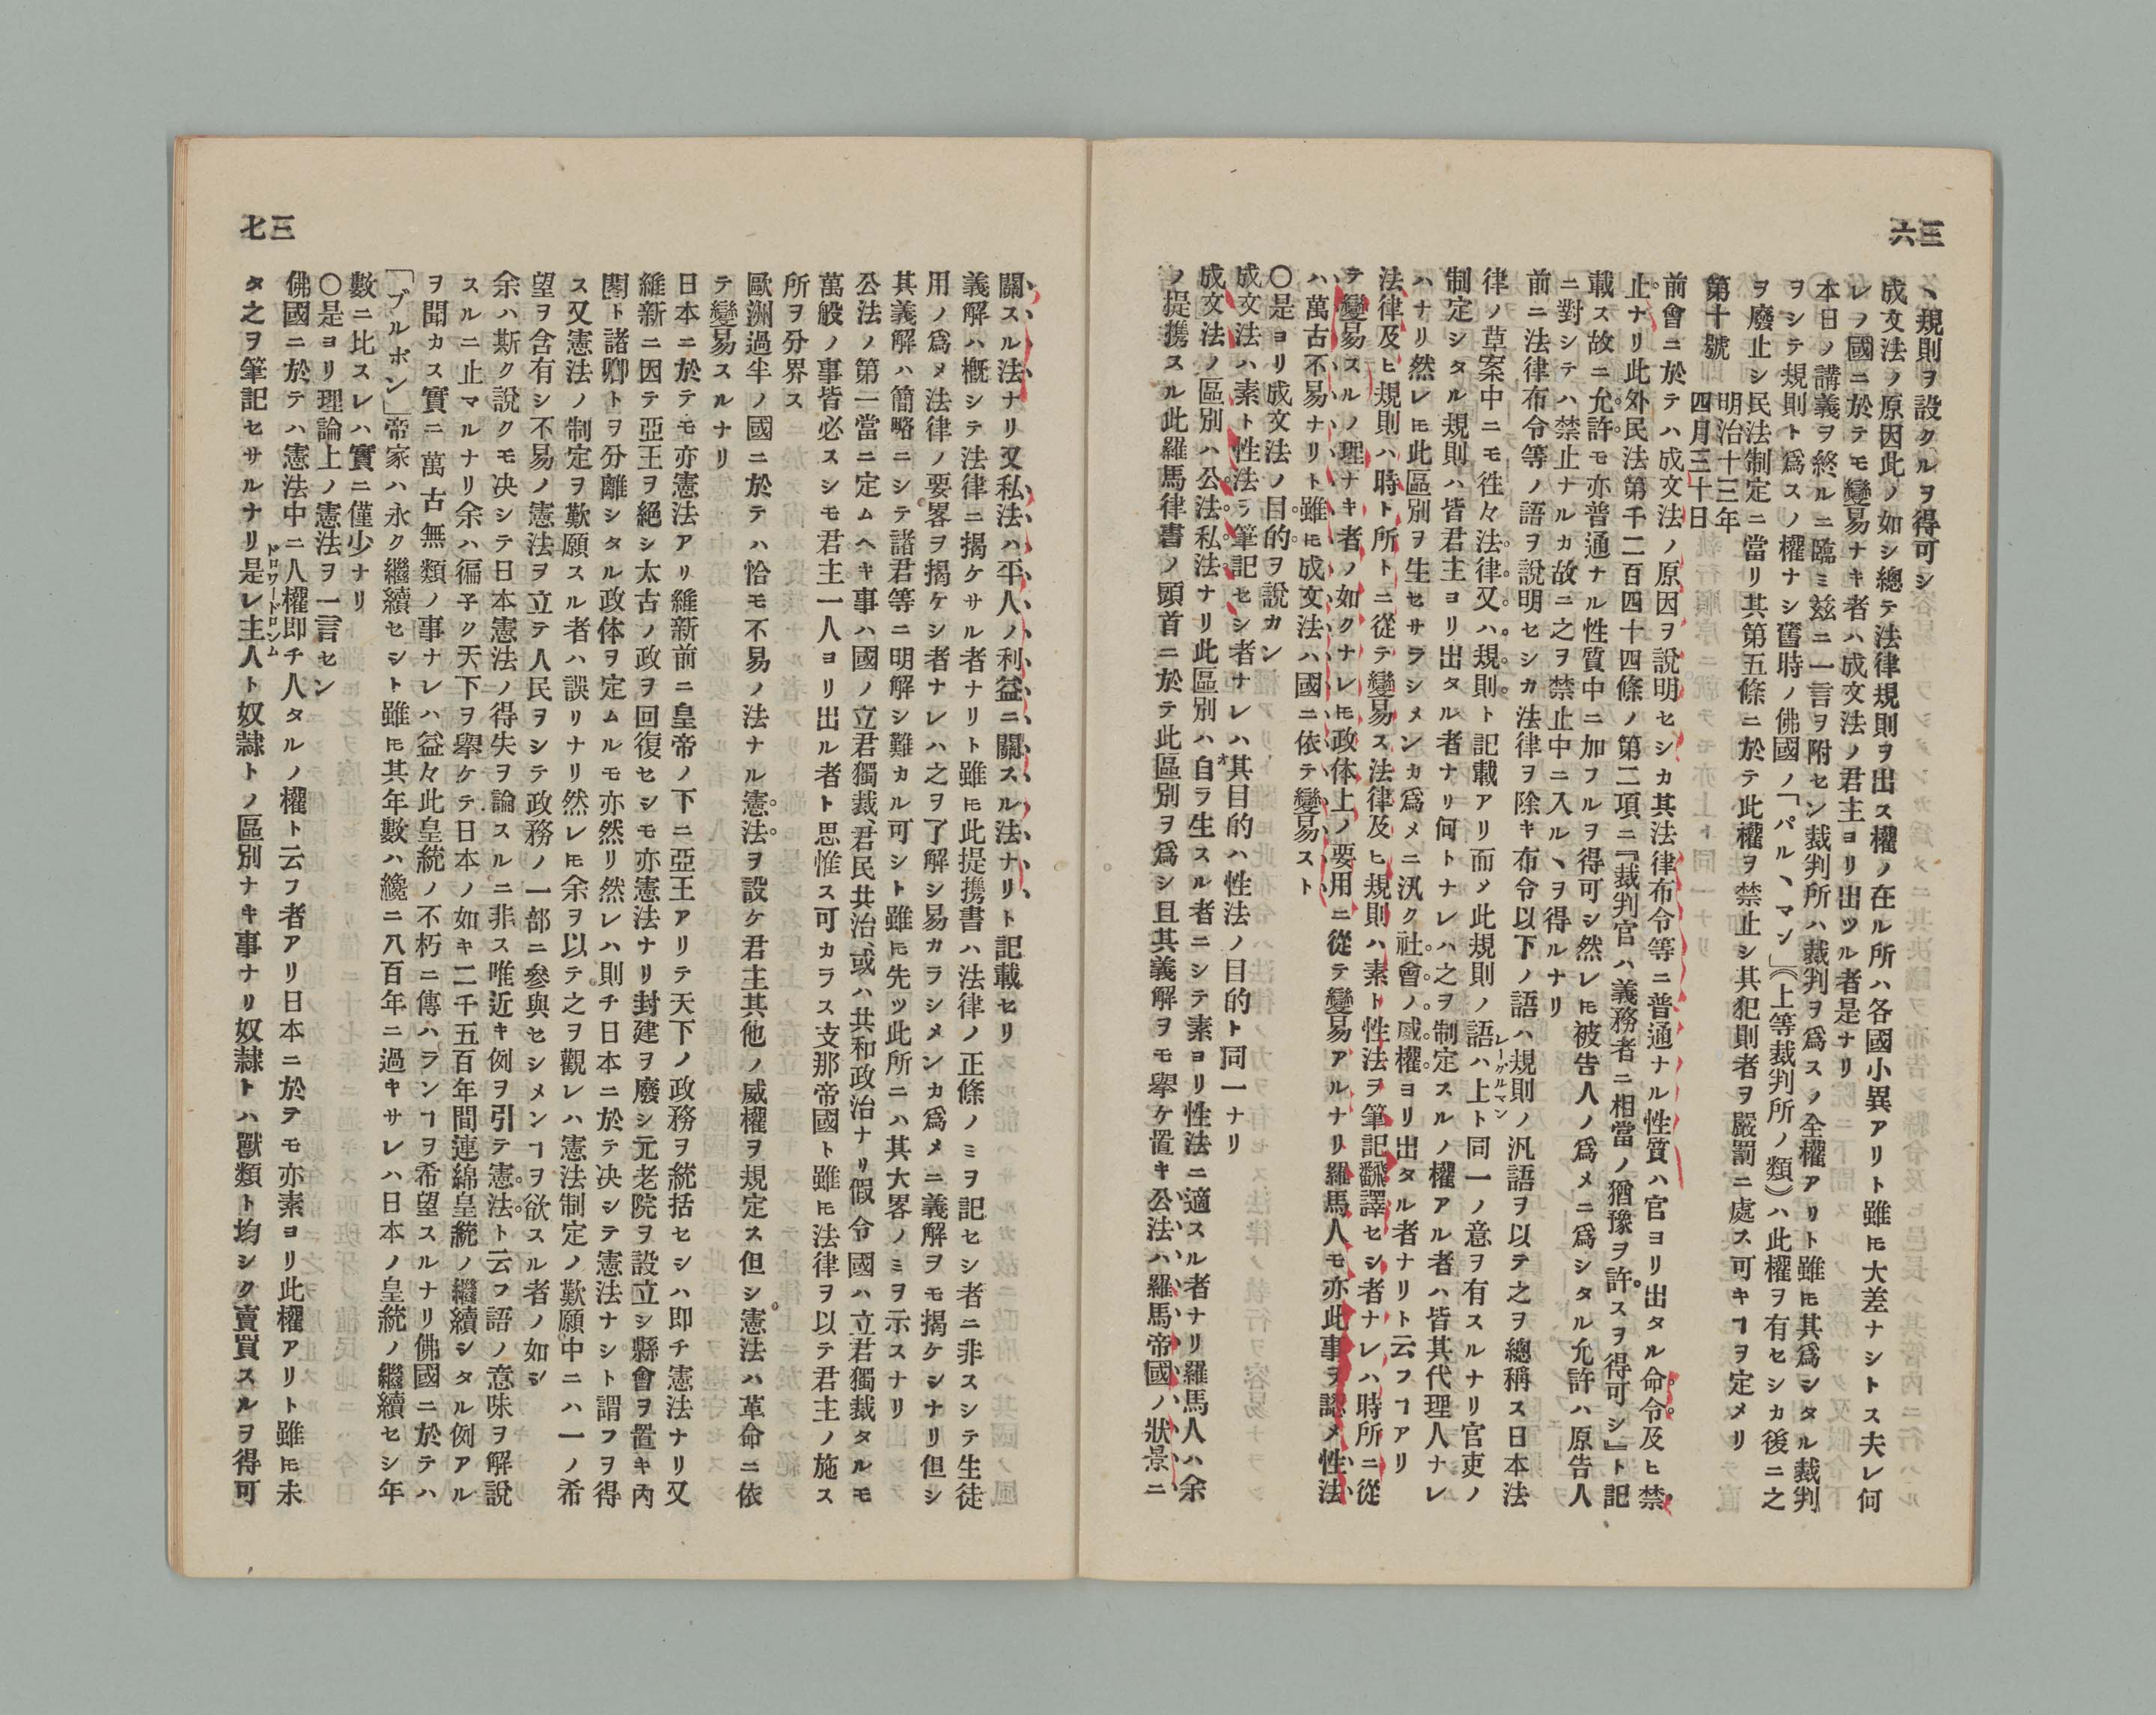 三六
ヽ規則ヲ設クルヲ得可シ
成文法ノ原因此ノ如シ總テ法律規則ヲ出ス權ノ在ル所ハ各國小異アリト雖𪜈大差ナシトス夫レ何
レノ國ニ於テモ變易ナキ者ハ成文法ノ君主ヨリ出ツル者是ナリ
本日ノ講義ヲ終ルニ臨ミ玆ニ一言ヲ附セン裁判所ハ裁判ヲ爲スノ全權アリト雖𪜈其爲シタル裁判
ヲシテ規則ト爲スノ權ナシ舊時ノ佛國ノ「パルヽマン」(上等裁判所ノ類)ハ此權ヲ有セシカ後ニ之
ヲ廢止シ民法制定ニ當リ其第五條ニ於テ此權ヲ禁止シ其犯則者ヲ嚴罰ニ處ス可キヿヲ定メリ
第十號 明治十三年四月三十日
前會ニ於テハ成文法ノ原因ヲ說明セシカ其法律布令等ニ普通ナル性質ハ官ヨリ出タル命令及ヒ禁
止ナリ此外民法第千二百四十四條ノ第二項ニ「裁判官ハ義務者ニ相當ノ猶豫ヲ許スヲ得可シ」ト記
載ス故ニ允許モ亦普通ナル性質中ニ加フルヲ得可シ然レ𪜈被告人ノ爲メニ爲シタル允許ハ原告人
ニ對シテハ禁止ナルカ故ニ之ヲ禁止中ニ入ルヽヲ得ルナリ
前ニ法律布令等ノ語ヲ說明セシカ法律ヲ除キ布令以下ノ語ハ規則ノ汎語ヲ以テ之ヲ總稱ス日本法
レーグルマン
律ノ草案中ニモ徃々法律又ハ規則ト記載アリ而メ此規則ノ語ハ上ト同一ノ意ヲ有スルナリ官吏ノ
制定シタル規則ハ皆君主ヨリ出タル者ナリ何トナレハ之ヲ制定スルノ權アル者ハ皆其代理人ナレ
ハナリ然レ𪜈此區別ヲ生セサラシメンカ爲メニ汎ク社會ノ威權ヨリ出タル者ナリト云フヿアリ
法律及ヒ規則ハ時ト所トニ從テ變易ス法律及ヒ規則ハ素ト性法ヲ筆記飜譯セシ者ナレハ時所ニ從
テ變易スルノ理ナキ者ノ如クナレ𪜈政体上ノ要用ニ從テ變易アルナリ羅馬人モ亦此事ヲ認メ性法
ハ萬古不易ナリト雖𪜈成文法ハ國ニ依テ變易スト
〇是ヨリ成文法ノ目的ヲ說カン
成文法ハ素ト性法ヲ筆記セシ者ナレハ其目的ハ性法ノ目的ト同一ナリ
成文法ノ區別ハ公法私法ナリ此區別ハ自ヲ生スル者ニシテ素ヨリ性法ニ適スル者ナリ羅馬人ハ余
ノ提携スル此羅馬律書ノ頭首ニ於テ此區別ヲ爲シ且其義解ヲモ擧ケ置キ公法ハ羅馬帝國ノ狀景ニ
三七
關スル法ナリ又私法ハ平人ノ利益ニ關スル法ナリト記載セリ
義解ハ槪シテ法律ニ揭ケサル者ナリト雖𪜈此提携書ハ法律ノ正條ノミヲ記セシ者ニ非スシテ生徒
用ノ爲メ法律ノ要畧ヲ揭ケシ者ナレハ之ヲ了解シ易カラシメンカ爲メニ義解ヲモ揭ケシナリ但シ
其義解ハ簡略ニシテ諸君等ニ明解シ難カル可シト雖𪜈先ツ此所ニハ其大畧ノミヲ示スナリ
公法ノ第一當ニ定ムヘキ事ハ國ノ立君獨裁、君民共治、或ハ共和政治ナリ假令國ハ立君獨裁タルモ
萬般ノ事皆必スシモ君主一人ヨリ出ル者ト思惟ス可カラス支那帝國ト雖𪜈法律ヲ以テ君主ノ施ス
所ヲ分界ス
歐洲過半ノ國ニ於テハ恰モ不易ノ法ナル憲法ヲ設ケ君主其他ノ威權ヲ規定ス但シ憲法ハ革命ニ依
テ變易スルナリ
日本ニ於テモ亦憲法アリ維新前ニ皇帝ノ下ニ亞王アリテ天下ノ政務ヲ統括セシハ即チ憲法ナリ又
維新ニ因テ亞王ヲ絕シ太古ノ政ヲ回復セシモ亦憲法ナリ封建ヲ廢シ元老院ヲ設立シ縣會ヲ置キ內
閣ト諸卿トヲ分離シタル政体ヲ定ムルモ亦然リ然レハ則チ日本ニ於テ决シテ憲法ナシト謂フヲ得
ス又憲法ノ制定ヲ歎願スル者ハ誤リナリ然レ𪜈余ヲ以テ之ヲ觀レハ憲法制定ノ歎願中ニハ一ノ希
望ヲ含有シ不易ノ憲法ヲ立テ人民ヲシテ政務ノ一部ニ參與セシメンヿヲ欲スル者ノ如シ
余ハ斯ク說クモ决シテ日本憲法ノ得失ヲ論スルニ非ス唯近キ例ヲ引テ憲法ト云フ語ノ意味ヲ解說
スルニ止マルナリ余ハ徧子ク天下ヲ擧ケテ日本ノ如キ二千五百年間連綿皇統ノ繼續シタル例アル
ヲ聞カス實ニ萬古無類ノ事ナレハ益々此皇統ノ不朽ニ傳ハランヿヲ希望スルナリ佛國ニ於テハ
「ブルボン」帝家ハ永ク繼續セシト雖𪜈其年數ハ纔ニ八百年ニ過キサレハ日本ノ皇統ノ繼續セシ年
數ニ比スレハ實ニ僅少ナリ
〇是ヨリ理論上ノ憲法ヲ一言セン
佛國ニ於テハ憲法中ニ人權即チ人タルノ權ト云フ者アリ日本ニ於ヲモ亦素ヨリ此權アリト雖𪜈未
ドロワードロンム
タ之ヲ筆記セサルナリ是レ主人ト奴隷トノ區別ナキ事ナリ奴隷トハ獸類ト均シク賣買スルヲ得可